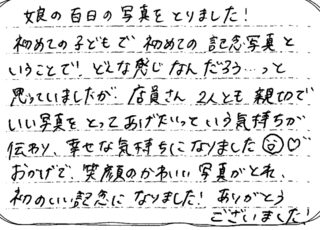 娘の百日の写真をとりました!
初めての子どもで初めての記念写真と
いうことで、どんな感じなんだろう…って
思っていましたが、店員さん2人とも親切で
いい写真をとってあげたいっていう気持ちが
伝わり、幸せな気持ちになりました☺♡
おかげで、笑顔のかわいい写真がとれ、
初のいい記念になりました!ありがとう
ございました!